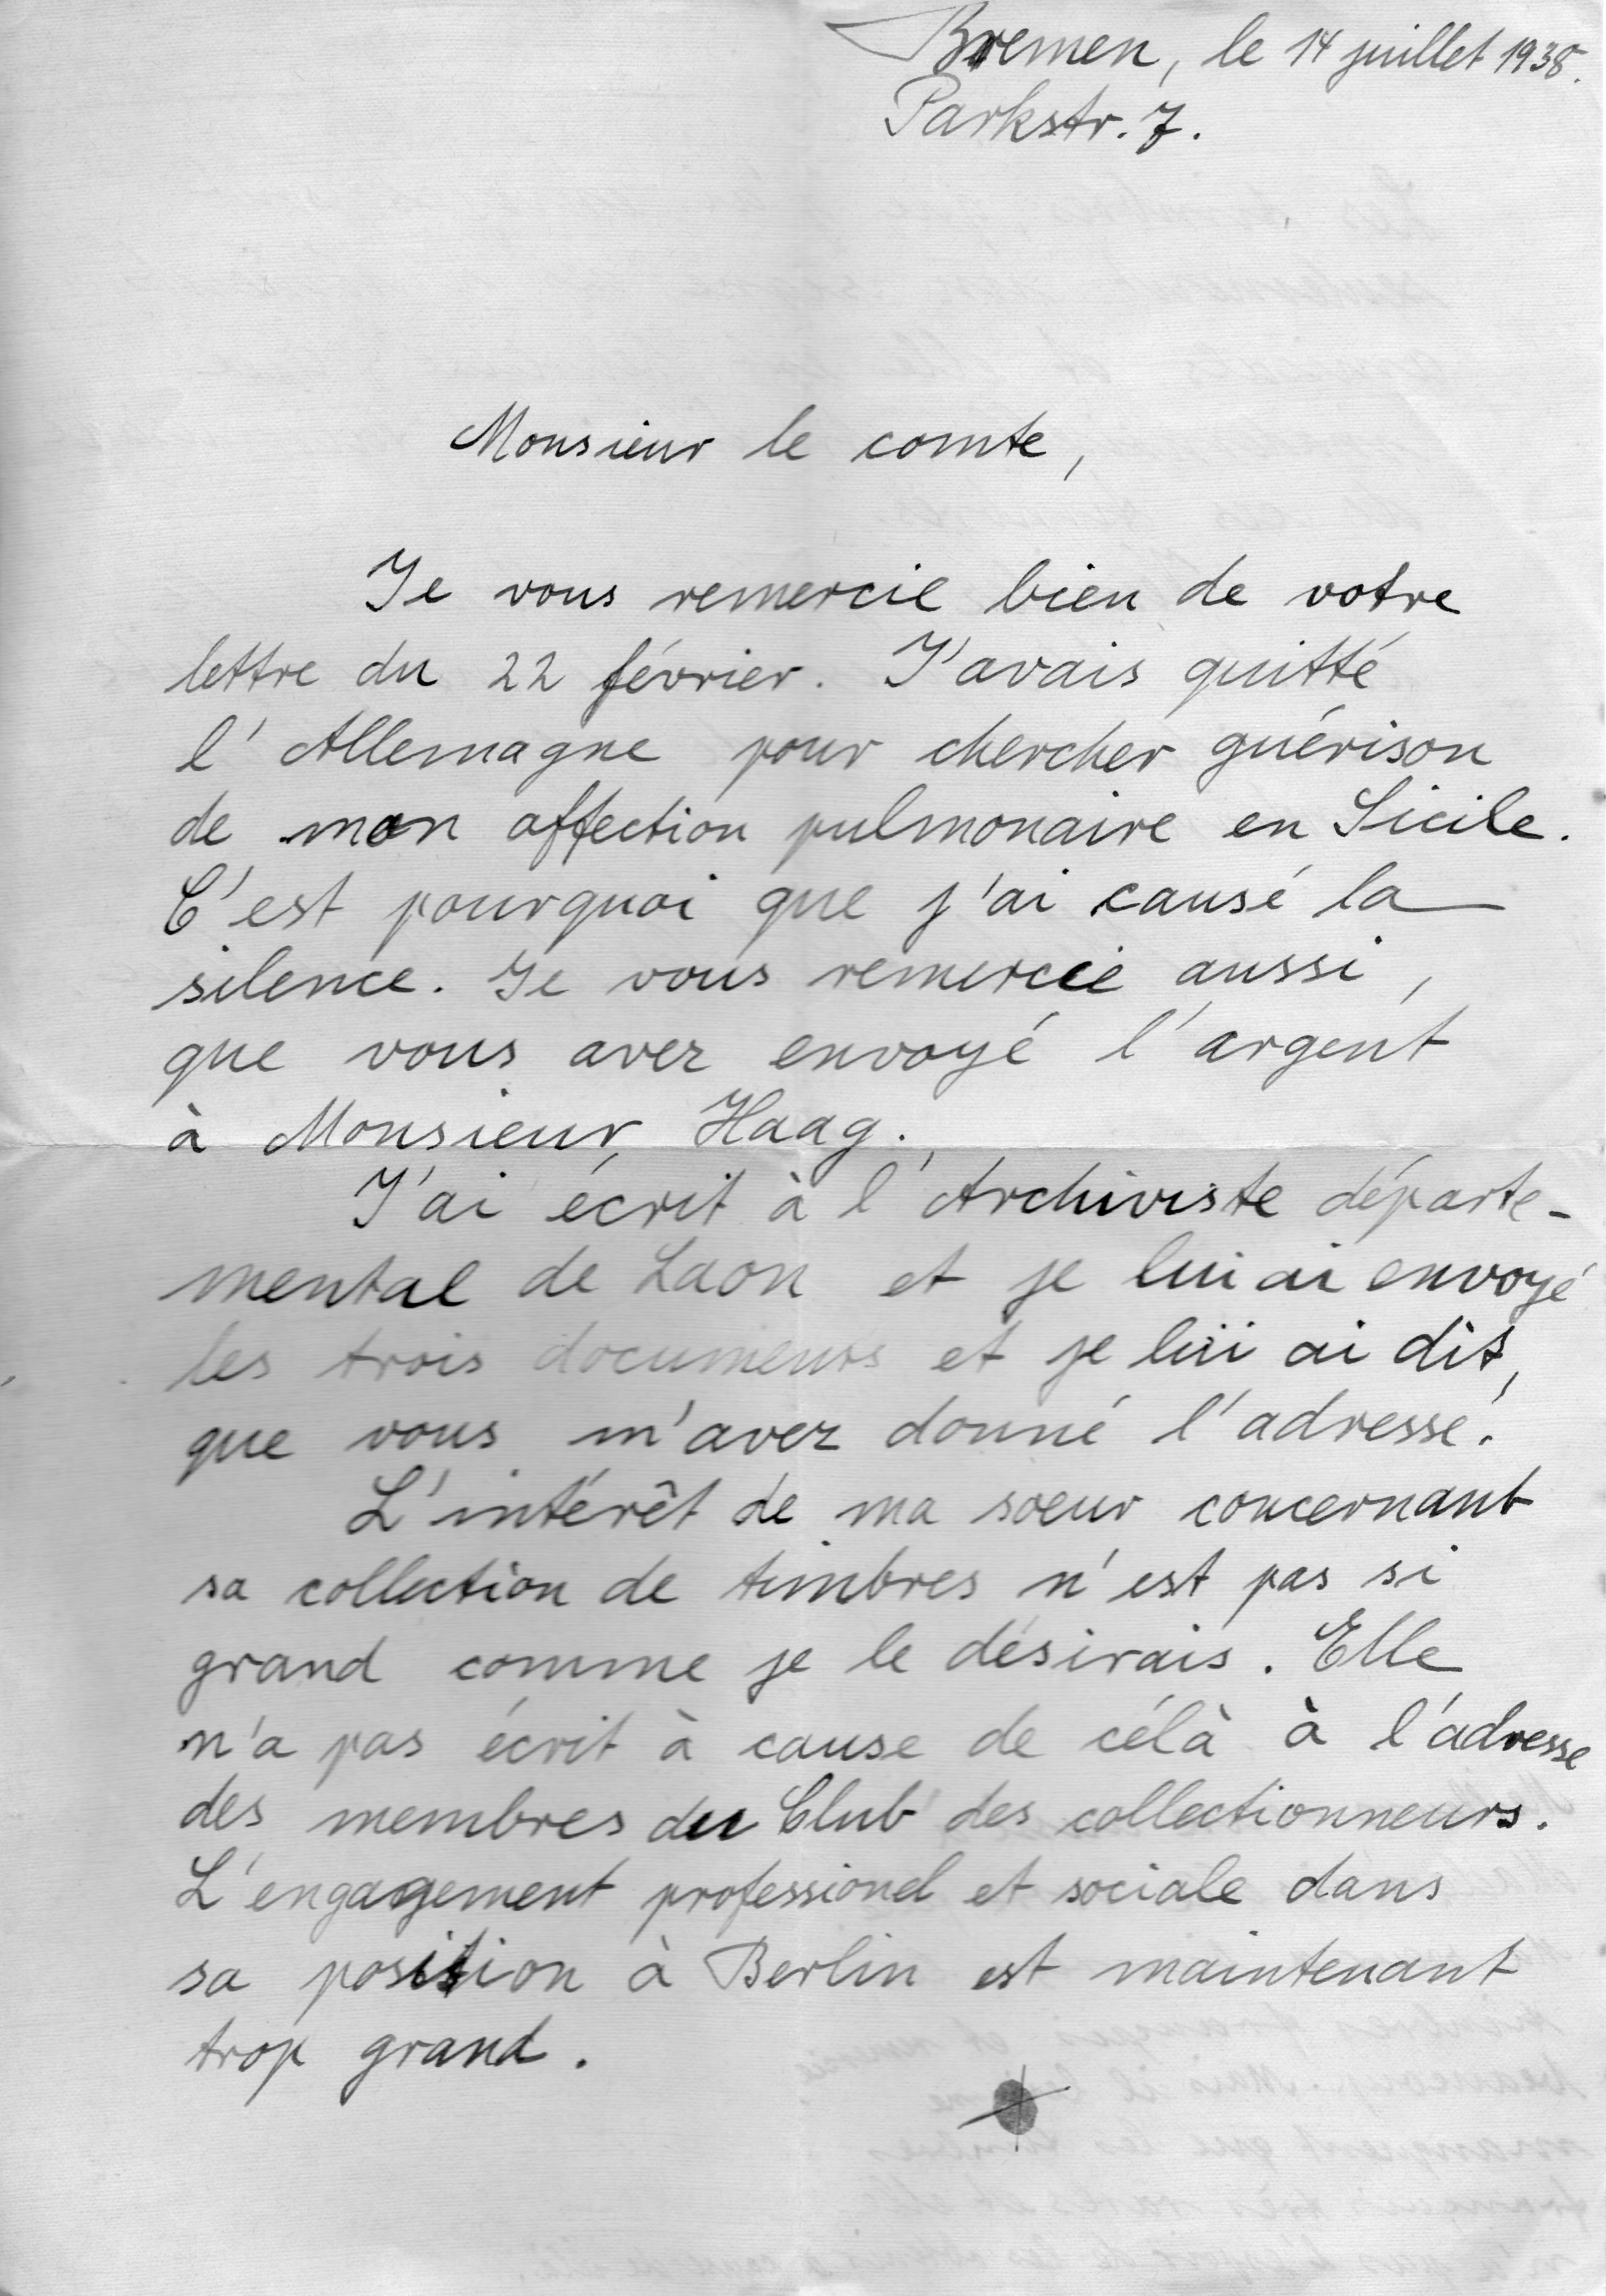 Bremen, le 14 juillet 1938.
Parkstr. 7.
Monsieur le comte,
Je vous remercie bien de votre
lettre du 22 février. J'avais quitté
l'Allemagne pour chercher guérison
de mon affection pulmonaire en Sicile.
C'est pourquoi que j'ai causé la
silence. Je vous remercie aussi,
que vous avez envoyé l'argent
à Monsieur Haag.
J'ai écrit à l'Archiviste départe-
mental de Laon et je lui ai envoyé
les trois documents et je lui ai dit,
que vous m'avez donné l'adresse.
L'intérêt de ma soeur concernant
sa collection de timbres n'est pas si
grand comme je le désirais. Elle
n'a pas écrit à cause de célà à l'adresse
des membres du Club des collectionneurs.
L'engagement professionel et sociale dans
sa position à Berlin est maintenant
trop grand.